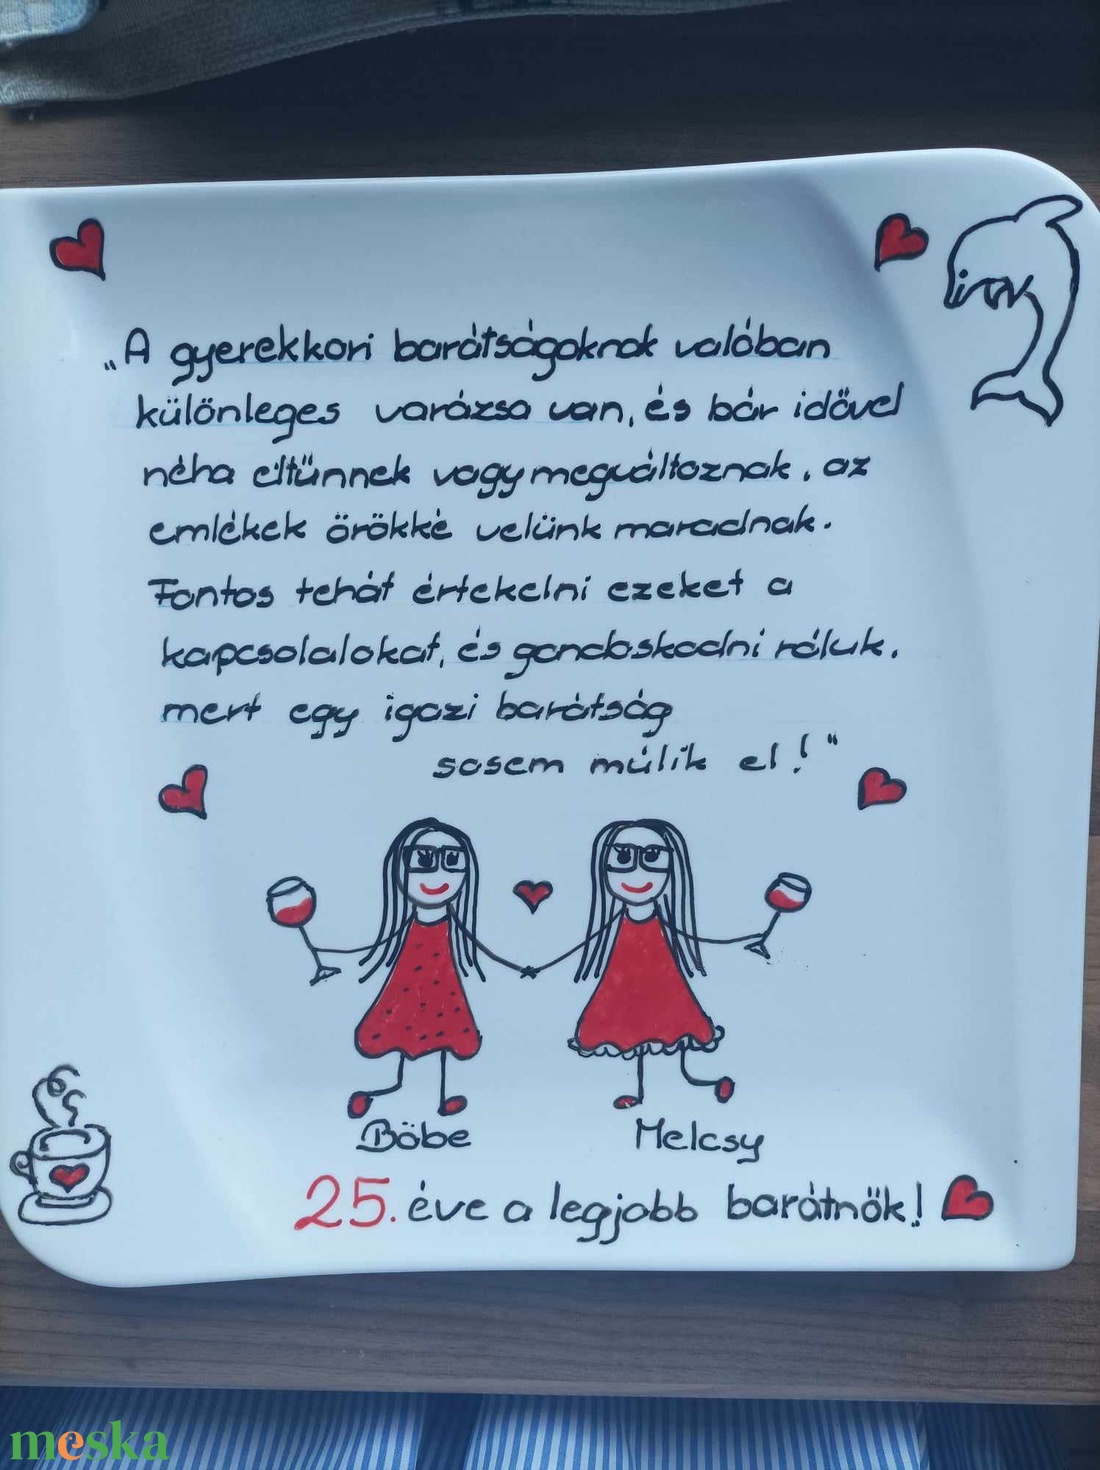 „A gyerekkori barátságoknak valóban
különleges varázsa van, és bár idővel
néha eltűnnek vagy megváltoznak, az
emlékek örökké velünk maradnak.
Fontos tehát értekelni ezeket a
kapcsolalokat, és gondoskodni róluk,
mert egy igazi barátság
sosem múlik el!"
Böbe
Melcsy
25. éve a legjobb barátnők!
meska